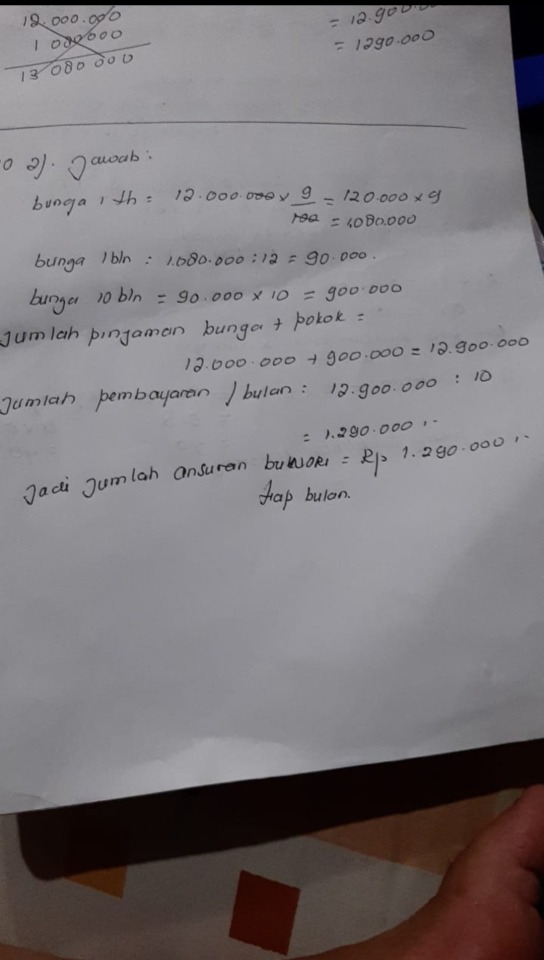 12.000.000
1 080000
13 080 000
= 12.900.
= 1290.000
2). Jawab:
bunga 1 th = 12.000.000 x 9/100 = 120.000 x 9
= 1080.000
bunga 1 bln : 1.080.000 : 12 = 90.000.
bunga 10 bln = 90.000 x 10 = 900.000
Jumlah pinjaman bunga + pokok =
12.000.000 + 900.000 = 12.900.000
Jumlah pembayaran / bulan : 12.900.000 : 10
= 1.290.000 ,-
Jadi Jumlah ansuran bu WORI = Rp 1.290.000 ,-
tiap bulan.